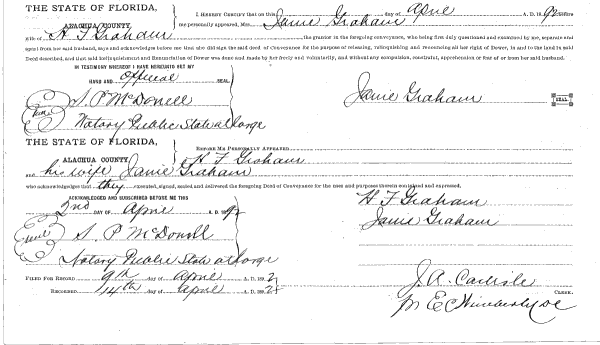 THE STATE OF FLORIDA,
ALACHUA COUNTY.
I HEREBY CERTIFY that on this day of April A. D. 1892 before
me personally appeared, Mrs. Janie Graham
wife of H F Graham the grantor in the foregoing conveyance, who being first duly questioned and examined by me, separate and
apart from her said husband, says and acknowledges before me that she did sign the said deed of Conveyance for the purpose of releasing, relinquishing and renouncing all her right of Dower, in and to the land in said
Deed described, and that said Relinquishment and Renunciation of Dower was done and made by her freely and voluntarily, and without any compulsion, constraint, apprehension or fear of or from her said husband.
IN TESTIMONY WHEREOF I HAVE HEREUNTO SET MY
HAND AND Official SEAL
S. P McDowell
Janie Graham SEAL
Notary Public State at large
THE STATE OF FLORIDA,
ALACHUA COUNTY.
BEFORE ME PERSONALLY APPEARED H F Graham
AND his wife Janie Graham
who acknowledges that they executed, signed, sealed and delivered the foregoing Deed of Conveyance for the uses and purposes therein contained and expressed.
ACKNOWLEDGED AND SUBSCRIBED BEFORE ME THIS
2nd DAY OF April A. D. 1892
H F Graham
Janie Graham
S. P McDowell
Notary Public State at large
FILED FOR RECORD 9th day of April A. D. 1892
J. A. Carlisle CLERK.
RECORDED 14th day of April A. D. 1892
pr E C Wimberly DC